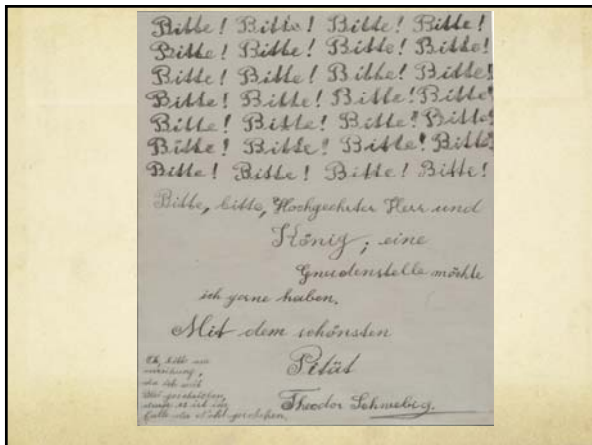 Bitte! Bitte! Bitte! Bitte!
Bitte! Bitte! Bitte! Bitte!
Bitte! Bitte! Bitte! Bitte!
Bitte! Bitte! Bitte! Bitte!
Bitte! Bitte! Bitte! Bitte!
Bitte! Bitte! Bitte! Bitte!
Bitte! Bitte! Bitte! Bitte!
Bitte, bitte, Hochgeehrter Herr und
König; eine
Gnadenstelle möchte
ich gerne haben.
Mit dem schönsten
Pität
Theodor
Ich bitte um